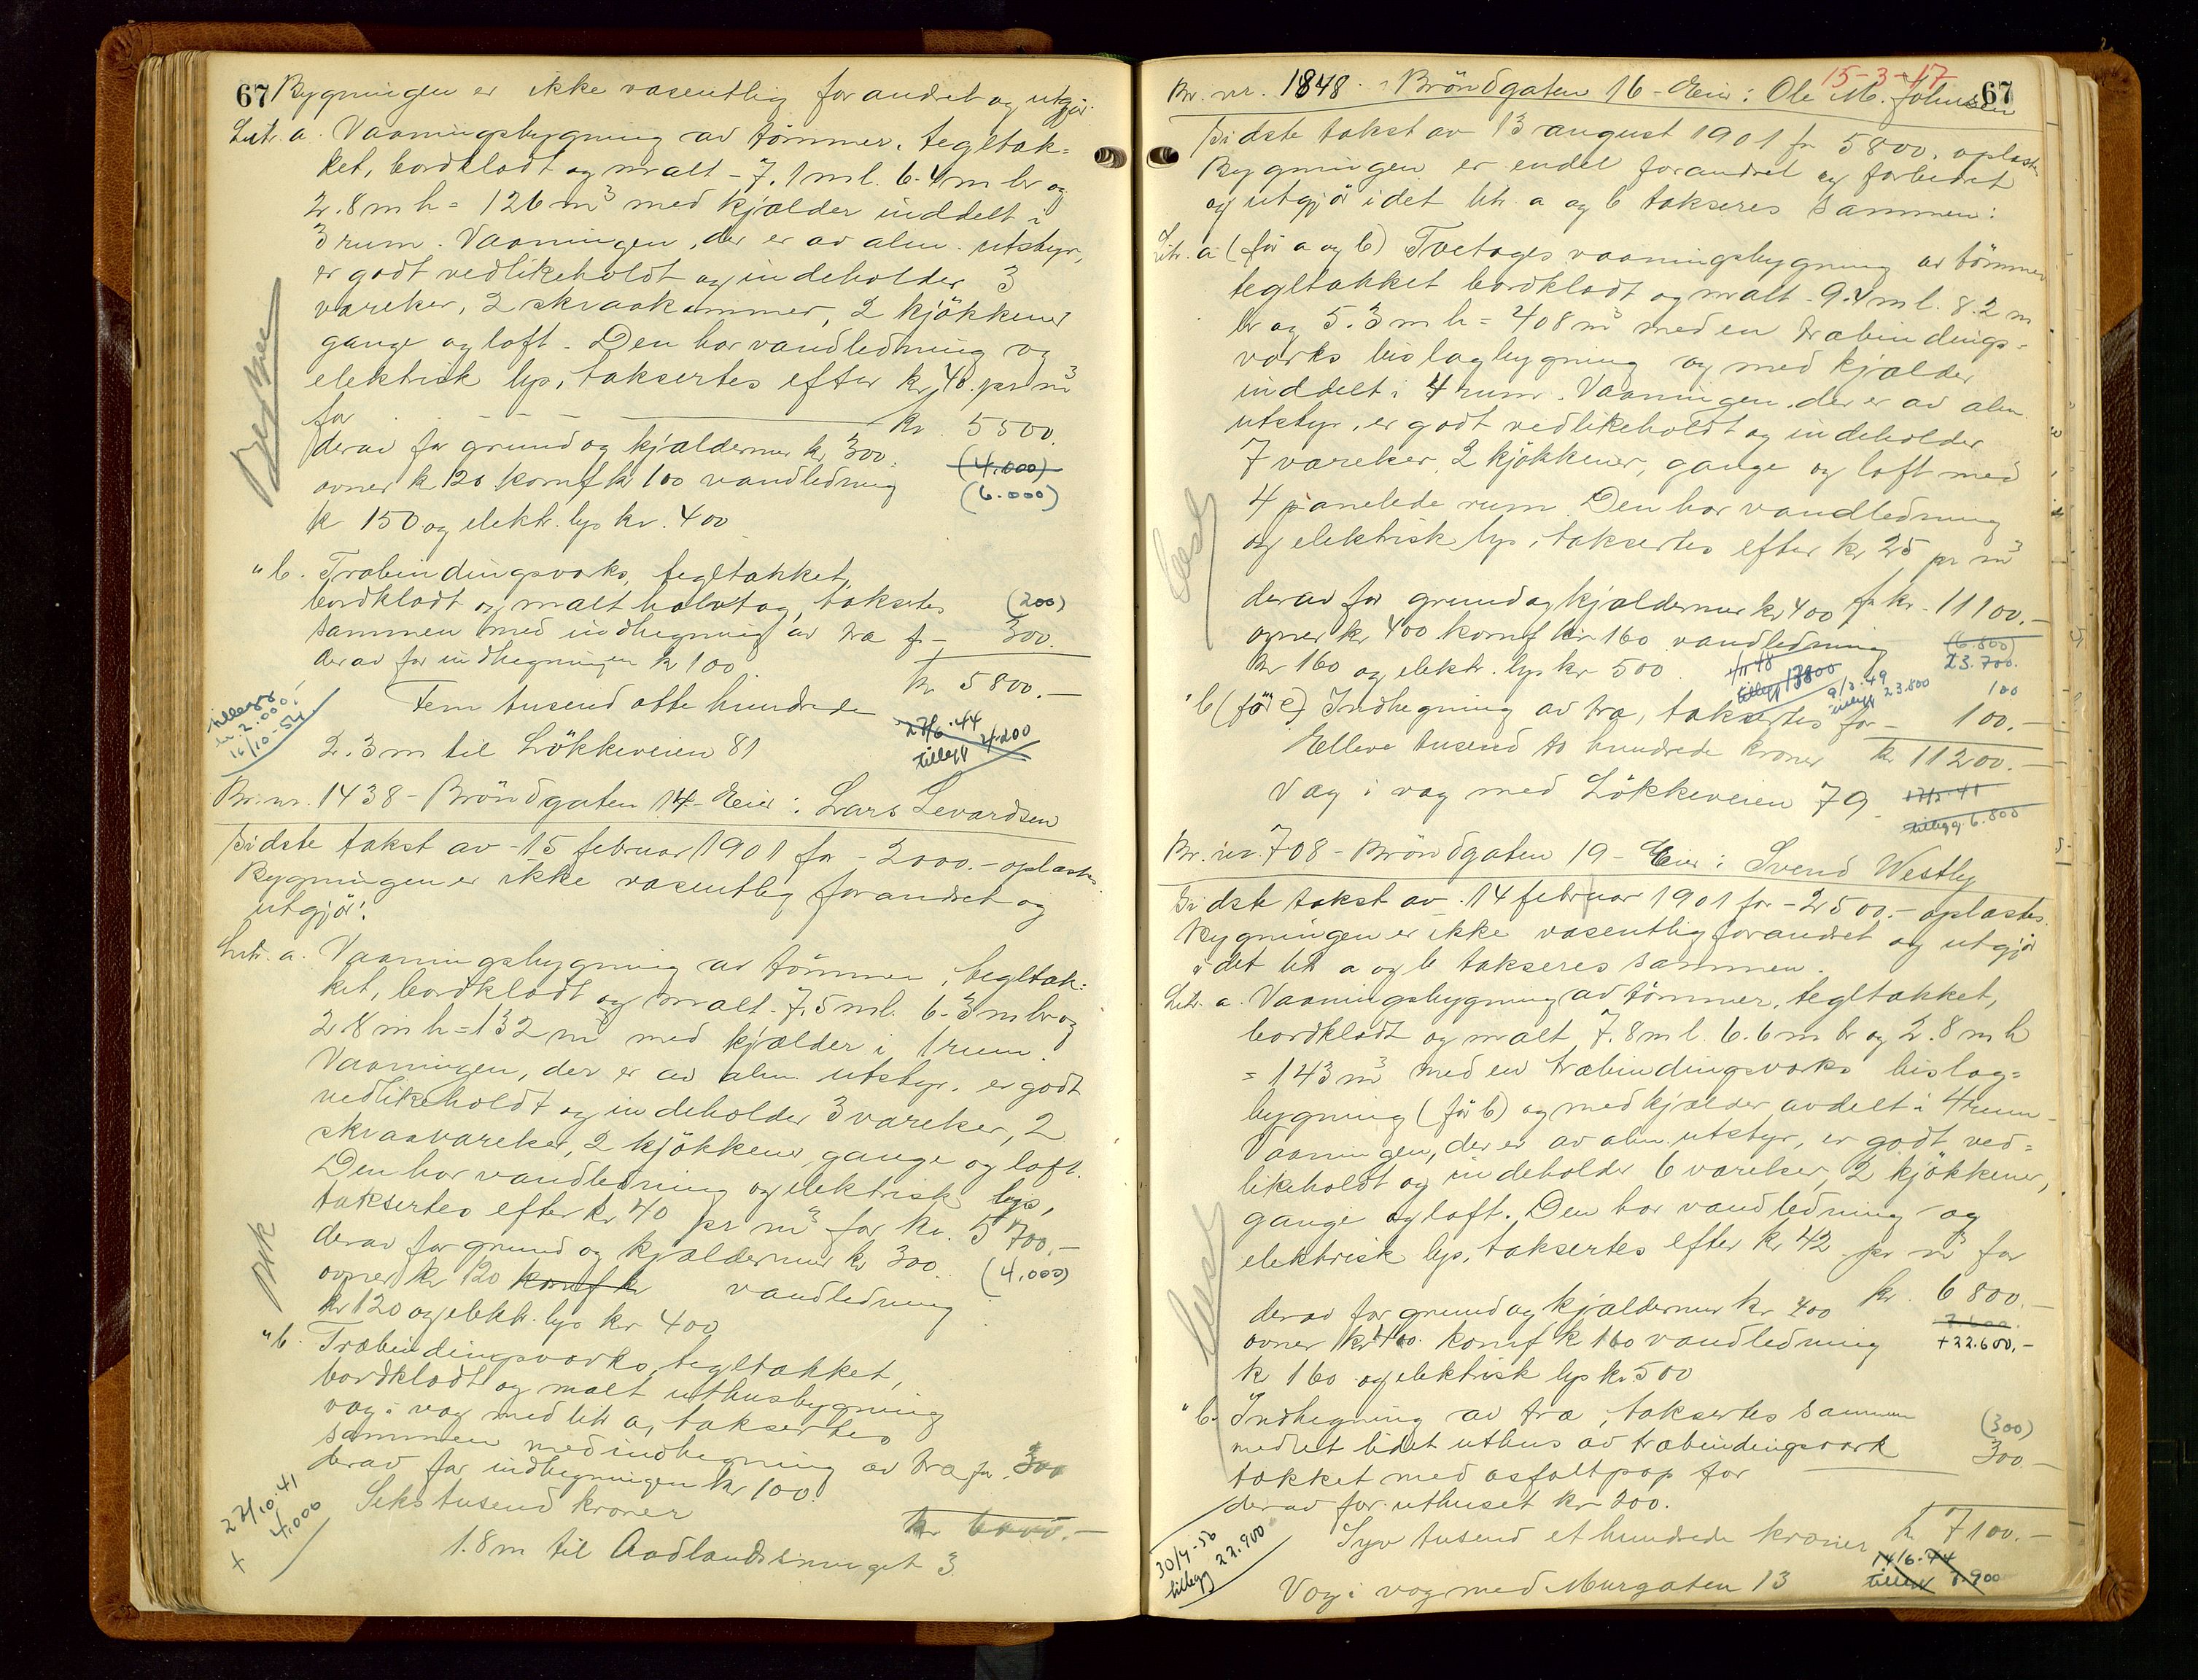 67 Bygningen er ikke væsentlig forandret og utgjör:
Litr. a. Vaaningsbygning av tömmer, tegltak-
ket, bordklædt og malt - 7.1 m l. 6.4 m br og
2.8 m h = 126 m³ med kjælder inddelt i
3 rum. Vaaningen, der er av alm. utstyr,
er godt vedlikeholdt og indeholder 3
værelser, 2 skraakammer, 2 kjökkener
gange og loft. Den har vandledning og
elektrisk lys, taksertes efter kr. 40. pr m³
for kr. 5500.
derav for grund og kjældermur kr 300. (4.000)
ovner kr 120 komf kr 100 vandledning (6.000)
kr 150 og elektr. lys kr. 400
" b. Træbindingsværks, tegltækket,
bordklædt og malt halvtag, taksertes (200)
sammen med indhegning av træ fr - 300.
derav for indhegningen kr 100 kr 5800.-
Fem tusend otte hundrede
tillegg
kr. 2.000!
16/10-54
27/6.44
tillegg 4200
2.3 m til Lökkeveien 81
Br. nr. 1438 - Bröndgaten 14 - Eier: Lars Levardsen
Sidste takst av - 15 februar 1901 for - 2000.- oplæstes.
Bygningen er ikke væsentlig forandret og
utgjör:
Litr. a. Vaaningsbygning av tömmer, tegltak-
ket, bordklædt og malt - 7.5 m l. 6.3 m br og
2.8 m h = 132 m³ med kjælder i 1 rum.
Vaaningen, der er av alm. utstyr, er godt
vedlikeholdt og indeholder 3 værelser, 2
skraaværelser, 2 kjökkener, gange og loft.
Den har vandledning og elektrisk lys,
taksertes efter kr. 40 pr m³ for kr. 5700.-
derav for grund og kjældermur kr 300. (4.000)
ovner kr 120 komf kr vandledning
kr 120 og elektr. lys kr 400
" b. Træbindingsværks, tegltækket,
bordklædt og malt uthusbygning
væg i væg med litr a, taksertes
sammen med indhegning av træ fr. 300
derav for indhegningen kr 100.
Seks tusend kroner kr 6000.-
27/10.41
4.000
+
1.8 m til Aadlandssmuget 3
15-3-17
Br. nr. 1848. - Bröndgaten 16 - Eier: Ole M. Johnsen 67
Sidste takst av 13 august 1901 fr 5800. oplæstes
Bygningen er endel forandret og forbedret
og utgjör idet litr. a og b takseres sammen:
Litr. a (för a og b) Toetages vaaningsbygning av tömmer
tegltækket bordklædt og malt - 9.4 m l. 8.2 m
br og 5.3 m h = 408 m³ med en træbindings-
værks bislagbygning og med kjælder
inddelt i 4 rum. Vaaningen, der er av alm.
utstyr, er godt vedlikeholdt og indeholder
7 værelser 2 kjökkener, gange og loft med
4 panelede rum. Den har vandledning
og elektrisk lys, taksertes efter kr 25 pr m³
fr kr. 11100.-
derav for grund og kjældermur kr 400
ovner kr 400 komf kr 160 vandledning (6.800)
kr 160 og elektr. lys kr 500 23.700.
tillegg 13800
9/3.49
tillegg 23.800
100
" b (för c) Indhegning av træ, taksertes for - 100.-
Elleve tusend to hundrede kroner kr 11200.-
Væg i væg med Lökkeveien 79.
tillegg 6.800
Br. nr. 708 - Bröndgaten 19 - Eier: Svend Westby
Sidste takst av 14 februar 1901 for - 2500.- oplæstes.
Bygningen er ikke væsentlig forandret og utgjör
idet litr a og b takseres sammen.
Litr. a. Vaaningsbygning av tömmer, tegltækket,
bordklædt og malt 7.8 m l. 6.6 m br og 2.8 m h
= 143 m³ med en træbindingsværks bislag-
bygning (för b) og med kjælder avdelt i 4 rum -
Vaaningen, der er av alm. utstyr, er godt ved-
likeholdt og indeholder 6 værelser, 2 kjökkener,
gange og loft. Den har vandledning og
elektrisk lys, taksertes efter kr 42 pr m³ for
kr. 6800.-
derav for grund og kjældermur kr 400
ovner kr 400. komf kr 160 vandledning + 22.600.-
kr 160 og elektrisk lys kr. 500
" b. Indhegning av træ, taksertes sammen (300)
med et lidet uthus av træbindingsværk 300 -
tækket med asfaltpap for
derav for uthuset kr 200.
Syv tusend et hundrede kroner kr 7100.-
30/4-56
tillegg 22.900
14/6.44
tillegg 7.900
Væg i væg med Murgaten 13